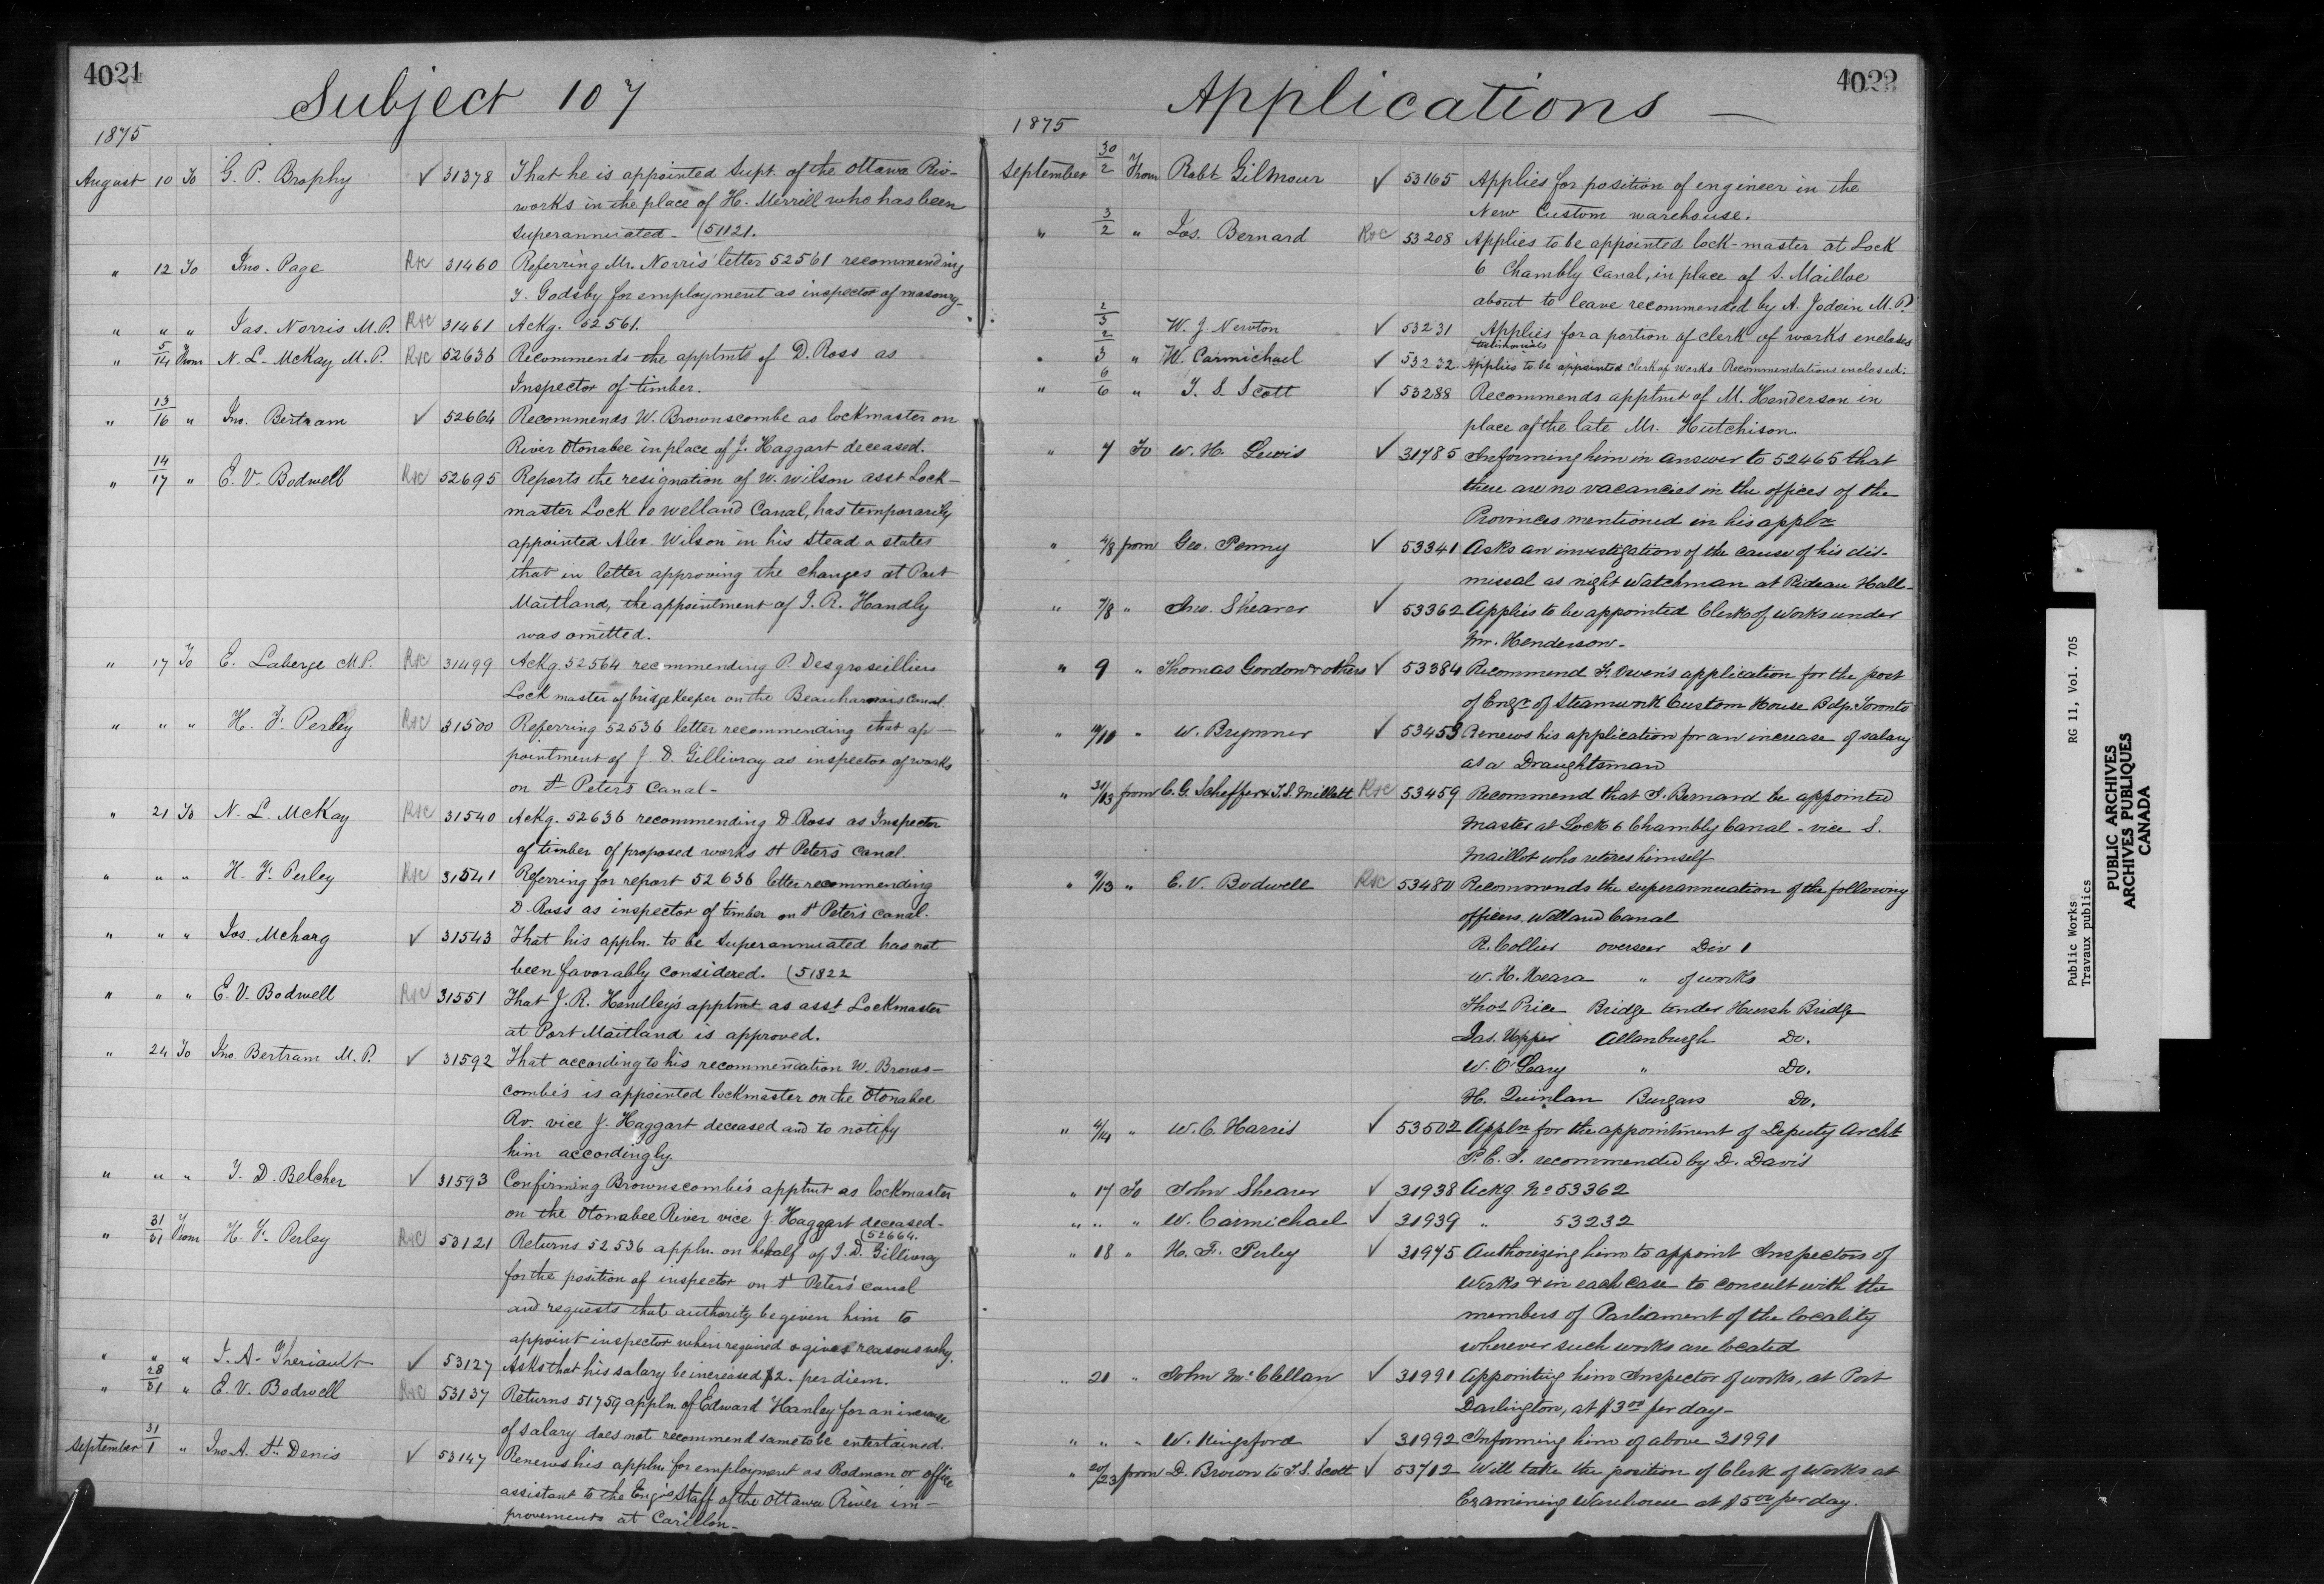 4021
Subject 107
1875
August 10 To G. P. Brophy ✓ 31378 That he is appointed Supt. of the Ottawa Riv-
works in the place of H. Merrill who has been
superannuated - (51121.
" 12 To Jno. Page R&C 31460 Referring Mr. Norris' letter 52561 recommending
T. Godsby for employment as inspector of masonry-
" " " Jas. Norris M.P. R&C 31461 Ackg. 52561.
" 5/14 From N. L. McKay M.P. R&C 52636 Recommends the apptmt of D. Ross as
Inspector of timber.
" 13/16 " Jno. Bertram ✓ 52664 Recommends W. Brownscombe as lockmaster on
River Otonabee in place of J. Haggart deceased.
" 14/17 " E. V. Bodwell R&C 52695 Reports the resignation of W. Wilson asst Lock-
master Lock 10 Welland Canal, has temporarily
appointed Alex. Wilson in his stead & states
that in letter approving the changes at Port
Maitland, the appointment of J. R. Handly
was omitted.
" 17 To E. Laberge M.P. R&C 31499 Ackg. 52564 recommending P. Desgroseilliers
Lock master of bridge keeper on the Beauharnois Canal.
" " " H. F. Perley R&C 31500 Referring 52536 letter recommending that ap-
pointment of J. D. Gillivray as inspector of works
on St Peter's Canal-
" 21 To N. L. McKay R&C 31540 Ackg. 52636 recommending D. Ross as Inspector
of timber of proposed works St Peter's Canal.
" " " H. F. Perley R&C 31541 Referring for report 52636 letter recommending
D. Ross as inspector of timber on St Peter's Canal.
" " " Jos. McHarg ✓ 31543 That his appln. to be superannuated has not
been favorably considered. (51822
" " " E. V. Bodwell R&C 31551 That J. R. Hendley's apptmt as asst Lockmaster
at Port Maitland is approved.
" 24 To Jno. Bertram M.P. ✓ 31592 That according to his recommendation W. Browns-
combe's is appointed lockmaster on the Otonabee
Rv. vice J. Haggart deceased and to notify
him accordingly.
" " " T. D. Belcher ✓ 31593 Confirming Brownscombe's apptmt as lockmaster
on the Otonabee River vice J. Haggart deceased-
(52664.
" 31/31 From H. F. Perley R&C 53121 Returns 52536 appln. on behalf of J. D. Gillivray
for the position of inspector on St Peter's Canal
and requests that authority be given him to
appoint inspector when required & gives reasons why.
" " " J. A. Theriault ✓ 53127 Asks that his salary be increased $2. per diem.
" 28/31 " E. V. Bodwell R&C 53137 Returns 51759 appln. of Edward Hanley for an increase
of salary does not recommend same to be entertained.
September 31/1 " Jno A. St. Denis ✓ 53147 Renews his appln. for employment as Rodman or office
assistant to the Eng's Staff of the Ottawa River im-
provements at Carillon-
4022
Applications —
1875
September 30/2 From Robt Gilmour ✓ 53165 Applies for position of engineer in the
New Custom warehouse.
" 3/2 " Jas. Bernard R&C 53208 Applies to be appointed lock-master at Lock
6 Chambly Canal, in place of S. Mailloe
about to leave recommended by A. Jodoin M.P.
2/3 W. J. Newton ✓ 53231 Applies for a portion of clerk of works encloses
testimonials
" 2/3 " W. Carmichael ✓ 53232 Applies to be appointed Clerk of Works Recommendations enclosed.
" 6/6 " T. S. Scott ✓ 53288 Recommends apptmt of M. Henderson in
place of the late Mr. Hutchison.
" 7 To W. H. Lewis ✓ 31785 Informing him in answer to 52465 that
there are no vacancies in the offices of the
Provinces mentioned in his appln
" 4/8 from Geo. Penny ✓ 53341 Asks an investigation of the cause of his dis-
missal as night watchman at Rideau Hall-
" 7/8 " Jno. Shearer ✓ 53362 Applies to be appointed Clerk of Works under
Mr. Henderson-
" 9 " Thomas Gordon & others ✓ 53384 Recommend F. Owen's application for the post
of Engr. of Steamwork Custom House Bdg. Toronto
" 10/10 " W. Brymner ✓ 53453 Renews his application for an increase of salary
as a Draughtsman
" 31/13 from C. G. Scheffer & T. S. Millett R&C 53459 Recommend that J. Bernard be appointed
Master at Lock 6 Chambly Canal - vice S.
Maillot who retires himself
" 9/13 " E. V. Bodwell R&C 53480 Recommends the superannuation of the following
officers Welland Canal
R. Collier overseer Div 1
W. H. Meara " of works
Thos Price Bridge tender Hursh Bridge
Jas. Upper Allanburgh Do.
W. O'Leary " Do.
H. Quinlan Burgars Do.
" 4/14 " W. C. Harris ✓ 53502 Appln for the appointment of Deputy Archt
P. E. I. recommended by D. Davis
" 17 To John Shearer ✓ 31938 Ackg No 53362
" " " W. Carmichael ✓ 31939 " 53232
" 18 " H. F. Perley ✓ 31975 Authorizing him to appoint Inspectors of
Works & in each case to consult with the
members of Parliament of the locality
wherever such works are located
" 21 " John McClellan ✓ 31991 Appointing him Inspector of works, at Port
Darlington, at $3.00 per day-
" " " W. Kingsford ✓ 31992 Informing him of above 31991
" 20/23 from D. Brown to T. S. Scott ✓ 53712 Will take the position of Clerk of Works at
Examining Warehouse at $5.00 per day.
Public Works RG 11, Vol. 705
Travaux publics
PUBLIC ARCHIVES
ARCHIVES PUBLIQUES
CANADA